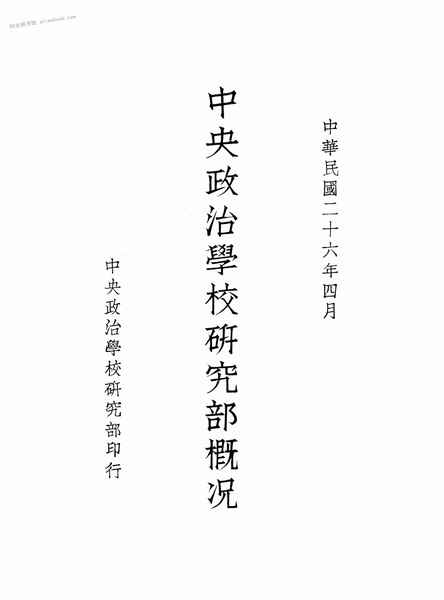 中華民國二十六年四月
中央政治學校研究部概况
中央政治學校研究部印行